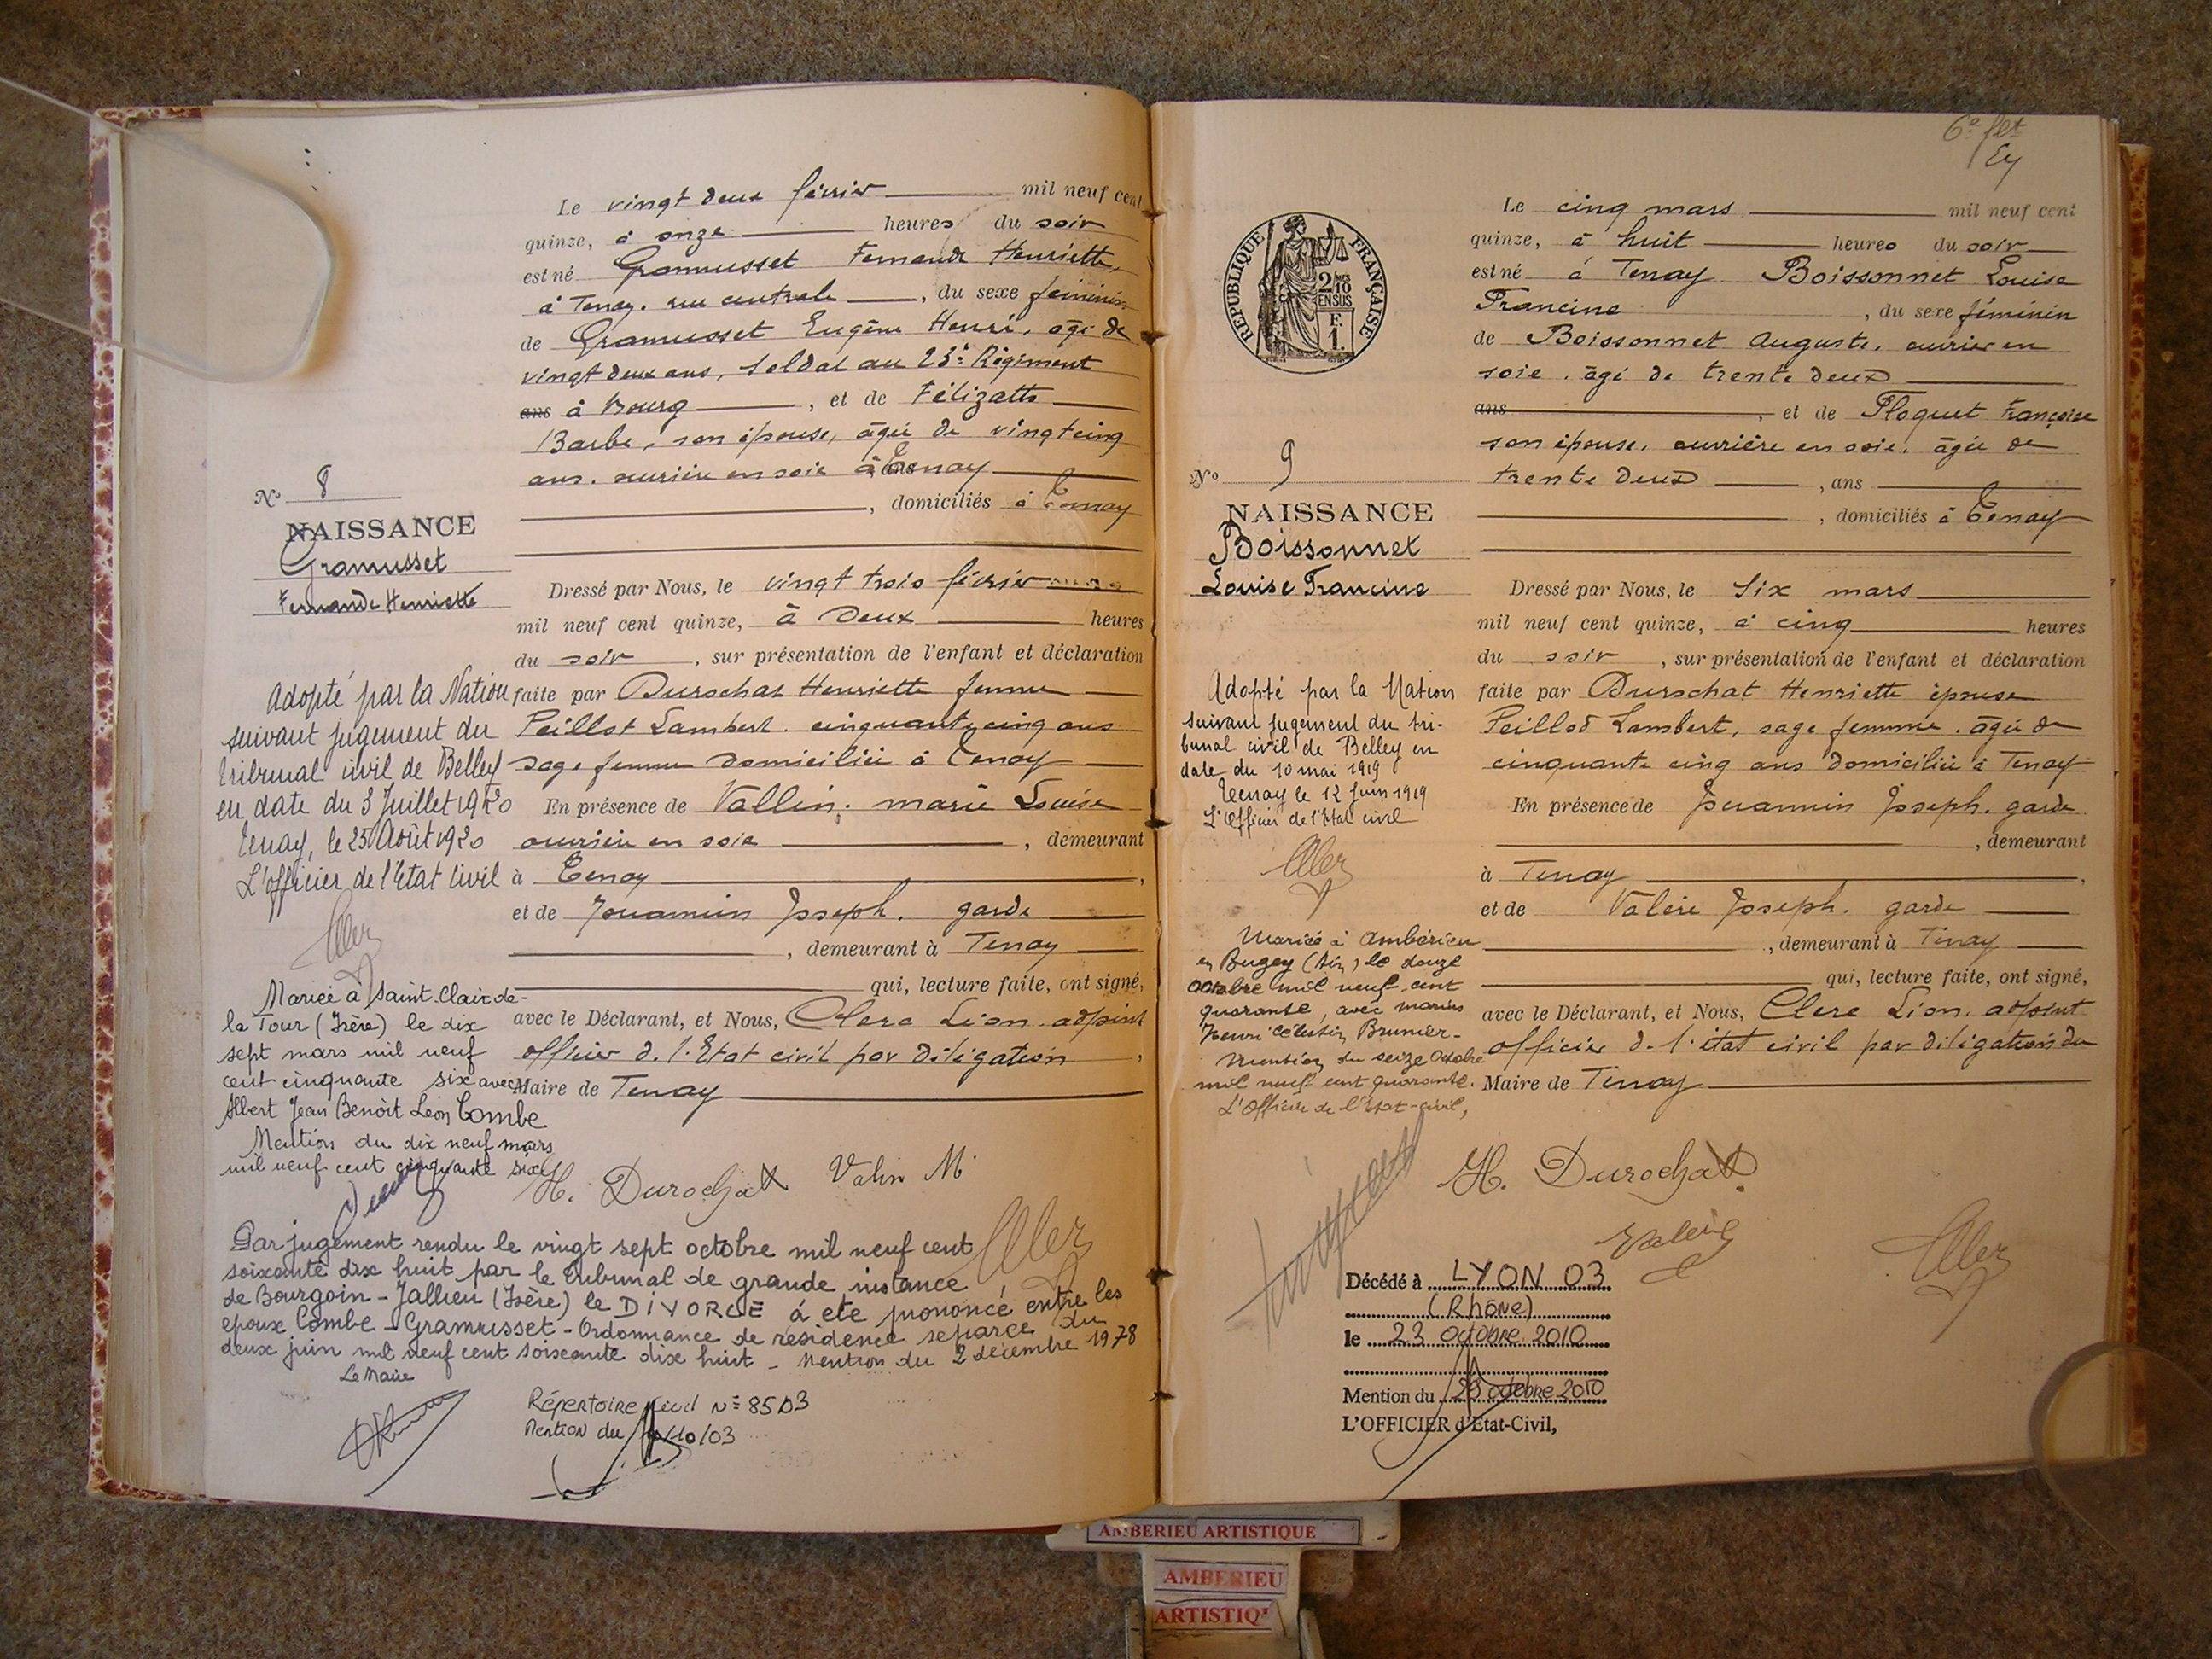 Le vingt deux février mil neuf cent
quinze, à onze heures du soir
est né Gramusset Fernande Henriette,
à Tenay. rue centrale, du sexe féminin
de Gramusset Eugène Henri, âgé de
vingt deux ans, soldat au 23e Régiment
ans à Bourg, et de Félizatto
Barbe, son épouse, âgée de vingt cinq
ans. ouvrière en soie à Tenay
, domiciliés à Tenay
N° 8
NAISSANCE
Gramusset
Fernande Henriette
Dressé par Nous, le vingt trois février
mil neuf cent quinze, à deux heures
du soir, sur présentation de l'enfant et déclaration
faite par Durochat Henriette femme
Peillod Lambert. cinquante cinq ans
sage femme domiciliée à Tenay
En présence de Vallin, marie Louise
ouvrière en soie, demeurant
à Tenay,
et de Jouannin Joseph. garde
, demeurant à Tenay
qui, lecture faite, ont signé,
avec le Déclarant, et Nous, Clerc Léon. adjoint
officier de l'Etat civil par délégation,
Maire de Tenay
Adopté par la Nation
suivant jugement du
tribunal civil de Belley
en date du 3 Juillet 1920
Tenay, le 25 Août 1920
L'officier de l'Etat Civil
Mariée à Saint-Clair-de-
la Tour (Isère) le dix
sept mars mil neuf
cent cinquante six avec
Albert Jean Benoît Léon Combe
Mention du dix neuf mars
mil neuf cent cinquante six
H. Durochat Valin M
Par jugement rendu le vingt sept octobre mil neuf cent
soixante dix huit par le tribunal de grande instance
de Bourgoin-Jallieu (Isère) le DIVORCE à été prononcé entre les
époux Combe-Gramusset - Ordonnance de résidence séparée du
deux juin mil neuf cent soixante dix huit - Mention du 2 décembre 1978
Le Maire
Répertoire civil N° 85 03
Mention du /10/03
6e flt
RÉPUBLIQUE FRANÇAISE
2/10 EN SUS
F.
1.
Le cinq mars mil neuf cent
quinze, à huit heures du soir
est né à Tenay Boissonnet Louise
Francine, du sexe féminin
de Boissonnet Auguste. ouvrier en
soie. âgé de trente deux
ans, et de Ploquet Françoise
son épouse. ouvrière en soie. âgée de
trente deux, ans
, domiciliés à Tenay
N° 9
NAISSANCE
Boissonnet
Louise Francine
Dressé par Nous, le Six mars
mil neuf cent quinze, à cinq heures
du soir, sur présentation de l'enfant et déclaration
faite par Durochat Henriette épouse
Peillod Lambert, sage femme. âgée de
cinquante cinq ans domiciliée à Tenay
En présence de Jouannin Joseph. garde
, demeurant
à Tenay,
et de Valérie Joseph. garde
, demeurant à Tenay
qui, lecture faite, ont signé,
avec le Déclarant, et Nous, Clerc Léon. adjoint
officier de l'état civil par délégation du
Maire de Tenay
Adopté par la Nation
suivant jugement du tri-
bunal civil de Belley en
date du 10 mai 1919
Tenay le 12 Juin 1919
L'Officier de l'Etat civil
Mariée à Ambérieu
en Bugey (Ain) le douze
octobre mil neuf cent
quarante, avec Marius
Henri Célestin Brunier-
Mention du seize Octobre
mil neuf cent quarante.
L'Officier de l'Etat-civil,
H. Durochat
Décédé à LYON 03
(Rhône)
le 23 octobre 2010
Mention du 28 octobre 2010
L'OFFICIER d'Etat-Civil,
AMBERIEU ARTISTIQUE
AMBERIEU
ARTISTIQ